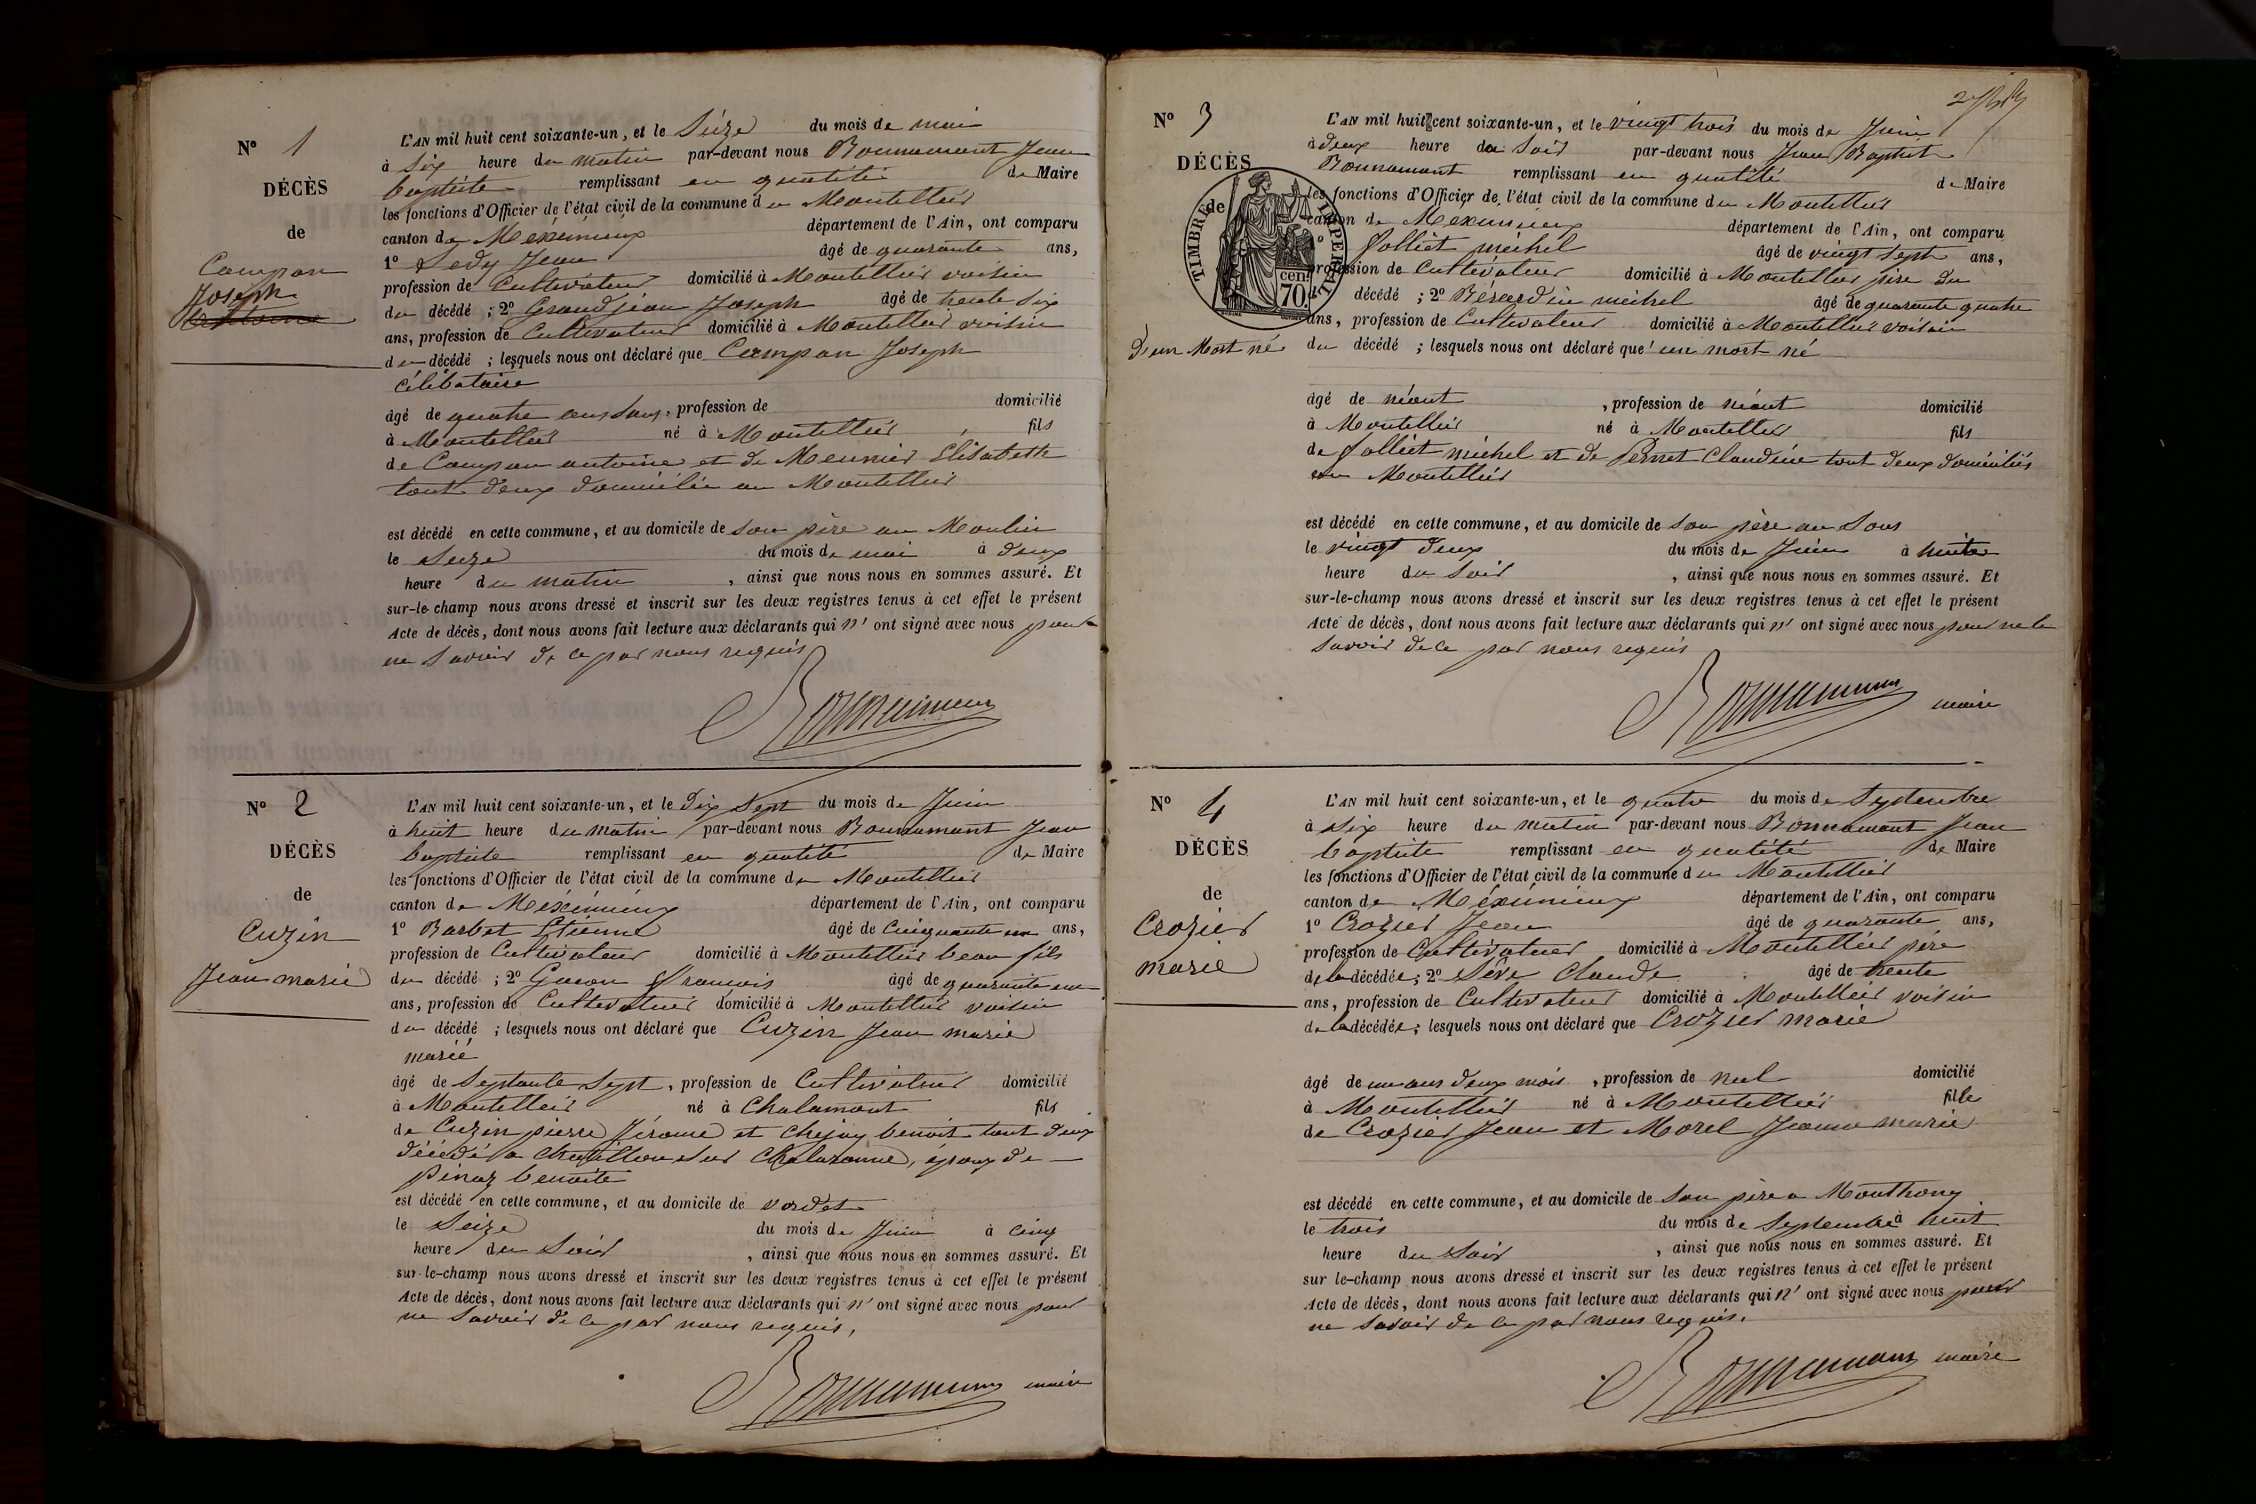 N° 1
DÉCÈS
de
Campan
Joseph
Antoine
L'AN mil huit cent soixante-un, et le Seize du mois de mai
à six heure du matin par-devant nous Bonnamant Jean
baptiste remplissant en qualité de Maire
les fonctions d'Officier de l'état civil de la commune du Montellier
canton de Meximieux département de l'Ain, ont comparu
1° Ledy Jean âgé de quarante ans,
profession de Cultivateur domicilié à Montellier voisin
du décédé ; 2° Grandjean Joseph âgé de trente six
ans, profession de Cultivateur domicilié à Montellier voisin
du décédé ; lesquels nous ont déclaré que Campan Joseph
célibataire
âgé de quatre ans , profession de domicilié
à Montellier né à Montellier fils
de Campan antoine et de Meunier Elisabette
tout deux domicilié au Montellier
est décédé en cette commune, et au domicile de son père au Moulin
le Seize du mois de mai à deux
heure du matin , ainsi que nous nous en sommes assuré. Et
sur-le-champ nous avons dressé et inscrit sur les deux registres tenus à cet effet le présent
Acte de décès, dont nous avons fait lecture aux déclarants qui n'ont signé avec nous pour
ne savoir de ce par nous requis
Bonnamant
N° 2
DÉCÈS
de
Cuzin
Jean marie
L'AN mil huit cent soixante-un, et le dix sept du mois de Juin
à huit heure du matin par-devant nous Bonnamant Jean
baptiste remplissant en qualité de Maire
les fonctions d'Officier de l'état civil de la commune du Montellier
canton de Méximieux département de l'Ain, ont comparu
1° Barbet Etienne âgé de cinquante un ans,
profession de Cultivateur domicilié à Montellier beau fils
du décédé ; 2° Gacon François âgé de quarante un
ans, profession de Cultivateur domicilié à Montellier voisin
du décédé ; lesquels nous ont déclaré que Cuzin Jean marie
marié
âgé de Septante Sept, profession de Cultivateur domicilié
à Montellier né à Chalamont fils
de Cuzin pierre Jérome et benoit tout deux
décédé à Chatillon sur Chalaronne, époux de
Pinaz benoite
est décédé en cette commune, et au domicile de vordet
le Seize du mois de Juin à cinq
heure du Soir , ainsi que nous nous en sommes assuré. Et
sur-le-champ nous avons dressé et inscrit sur les deux registres tenus à cet effet le présent
Acte de décès, dont nous avons fait lecture aux déclarants qui n'ont signé avec nous pour
ne savoir de ce par nous requis,
Bonnamant maire
N° 3
DÉCÈS
de
d'un Mort né
TIMBRE IMPERIAL
70 cen.
L'AN mil huit cent soixante-un, et le vingt trois du mois de Juin
à deux heure du Soir par-devant nous Jean Baptiste
Bonnamant remplissant en qualité de Maire
les fonctions d'Officier de l'état civil de la commune du Montellier
canton de Meximieux département de l'Ain, ont comparu
1° Jolliet michel âgé de vingt sept ans,
profession de Cultivateur domicilié à Montellier père du
décédé ; 2° Bérardin michel âgé de quarante quatre
ans, profession de Cultivateur domicilié à Montellier voisin
du décédé ; lesquels nous ont déclaré que un mort né
âgé de néant , profession de néant domicilié
à Montellier né à Montellier fils
de Jolliet michel et de Pernet Claudine tout deux domiciliés
au Montellier
est décédé en cette commune, et au domicile de son père au Sous
le vingt deux du mois de Juin à huit
heure du Soir , ainsi que nous nous en sommes assuré. Et
sur-le-champ nous avons dressé et inscrit sur les deux registres tenus à cet effet le présent
Acte de décès, dont nous avons fait lecture aux déclarants qui n'ont signé avec nous pour ne le
savoir de ce par nous requis
Bonnamant maire
N° 4
DÉCÈS
de
Crozier
marie
L'AN mil huit cent soixante-un, et le quatre du mois de Septembre
à six heure du matin par-devant nous Bonnamant Jean
baptiste remplissant en qualité de Maire
les fonctions d'Officier de l'état civil de la commune du Montellier
canton de Méximieux département de l'Ain, ont comparu
1° Crozier Jean âgé de quarante ans,
profession de Cultivateur domicilié à Montellier père
de la décédée ; 2° Sève Claude âgé de trente
ans, profession de Cultivateur domicilié à Montellier voisin
de la décédée ; lesquels nous ont déclaré que Crozier marie
âgé de un ans deux mois , profession de nul domicilié
à Montellier né à Montellier fille
de Crozier Jean et Morel Jeanne marie
est décédé en cette commune, et au domicile de son père a Monthony
le trois du mois de Septembre à huit
heure du Soir , ainsi que nous nous en sommes assuré. Et
sur le-champ nous avons dressé et inscrit sur les deux registres tenus à cet effet le présent
Acte de décès, dont nous avons fait lecture aux déclarants qui n'ont signé avec nous pour
ne savoir de ce par nous requis.
Bonnamant maire